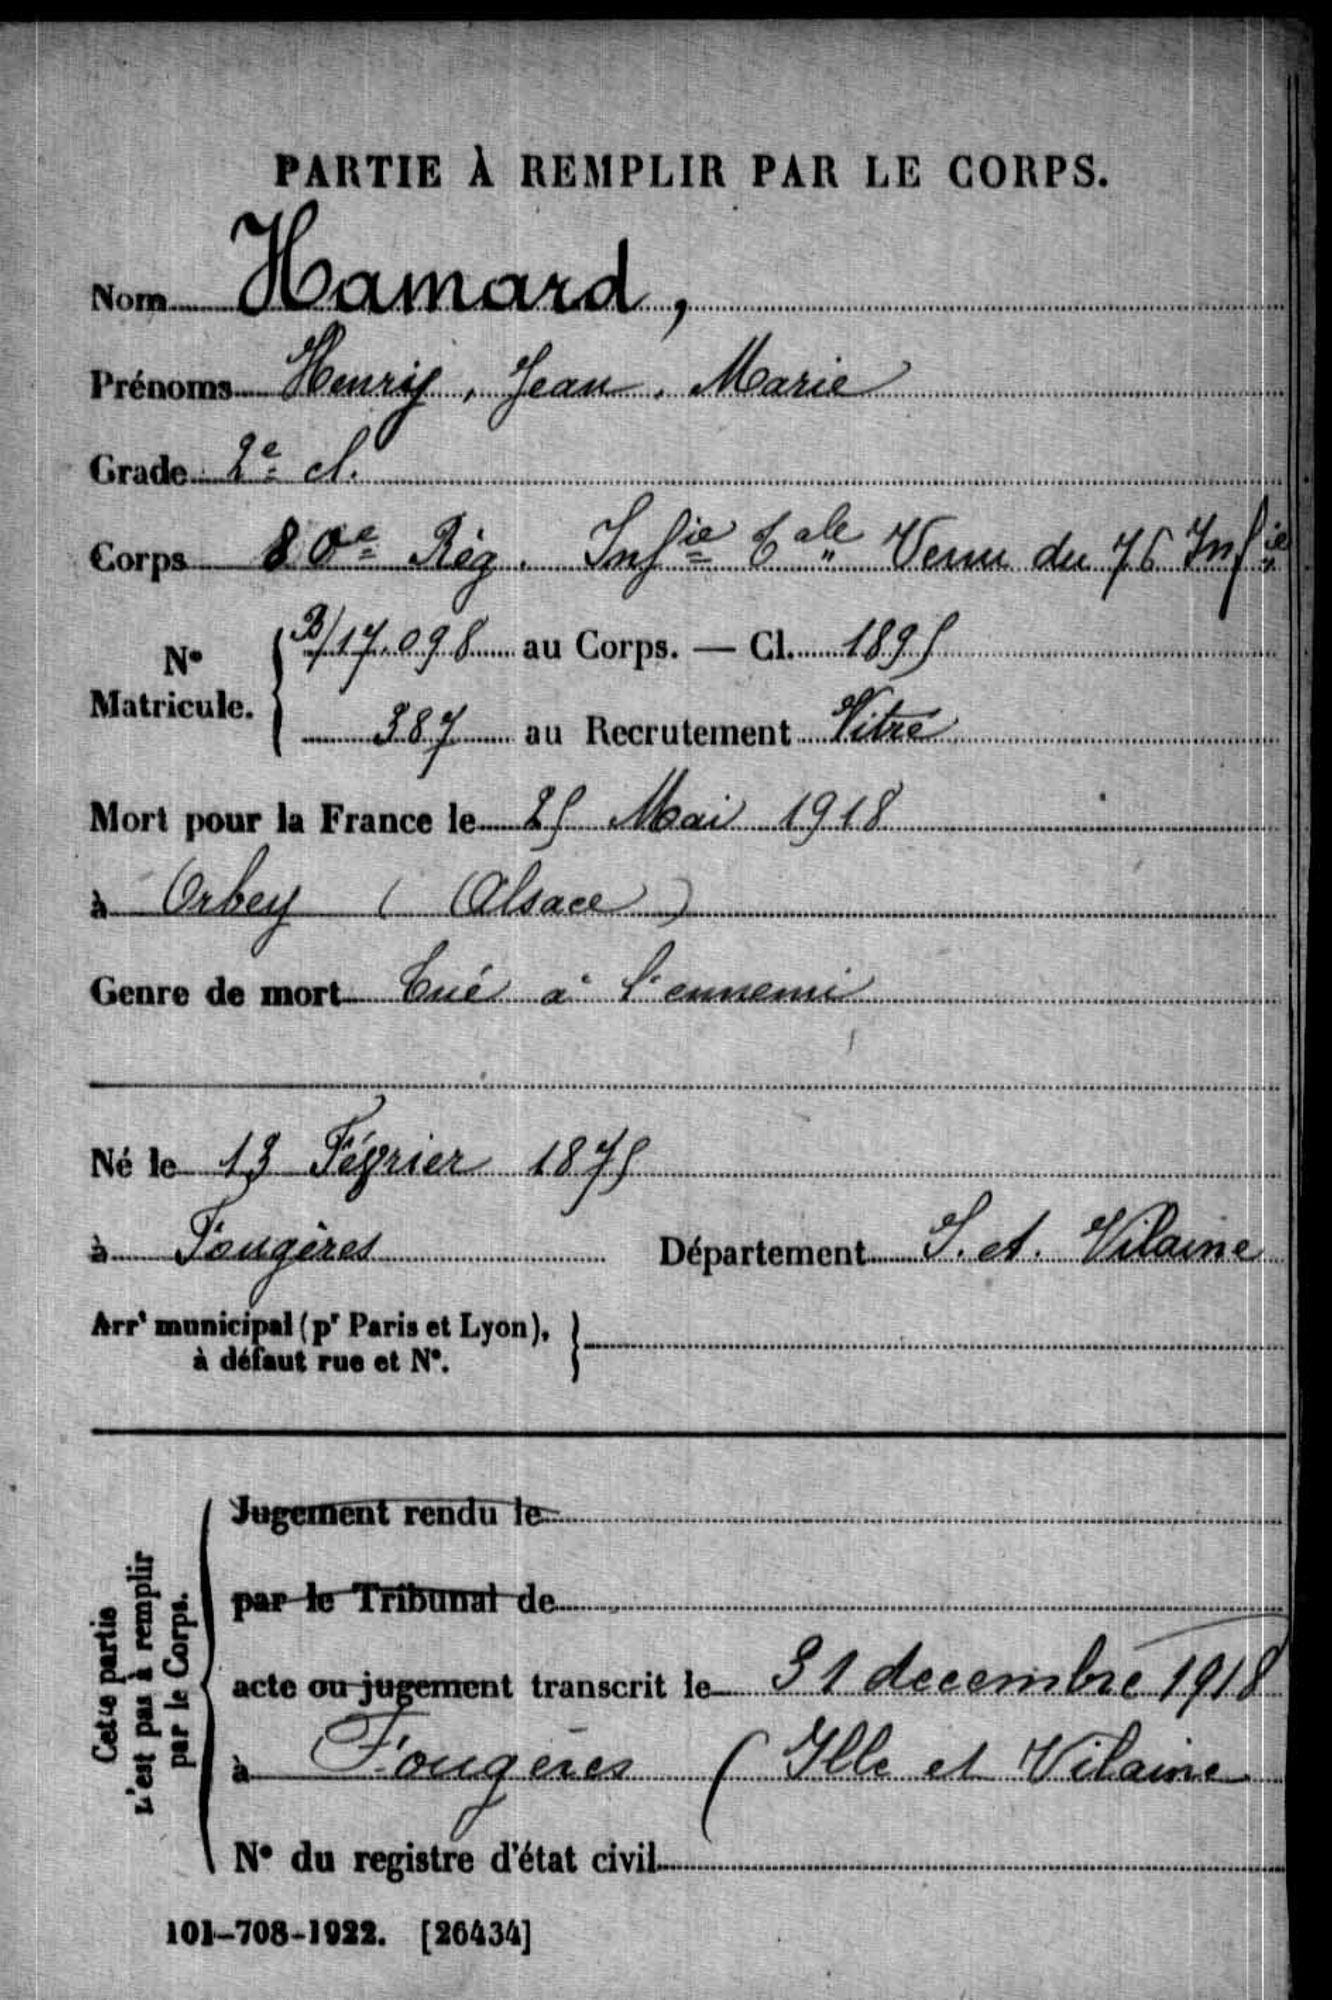 PARTIE À REMPLIR PAR LE CORPS.
Nom Hamard,
Prénoms Henry, Jean, Marie
Grade 2e cl.
Corps 80e Rég. Infie Tale Venu du 76 Infie
No Matricule.
B/17.098 au Corps. — Cl. 1895
387 au Recrutement Vitré
Mort pour la France le 25 Mai 1918
à Orbey (Alsace)
Genre de mort Tué à l'ennemi
Né le 13 Février 1875
à Fougères Département I. et. Vilaine
Arrt municipal (pr Paris et Lyon),
à défaut rue et No.
Cette partie
n'est pas à remplir
par le Corps.
Jugement rendu le
par le Tribunal de
acte ou jugement transcrit le 31 decembre 1918
à Fougères (Ille et Vilaine
No du registre d'état civil
101-708-1922. [26434]